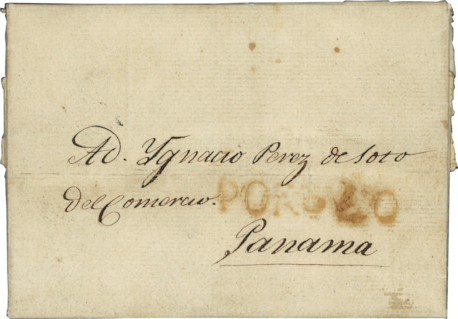 AD. Ygnacio Perez de Soto
del Comercio. PORTOVO
Panama